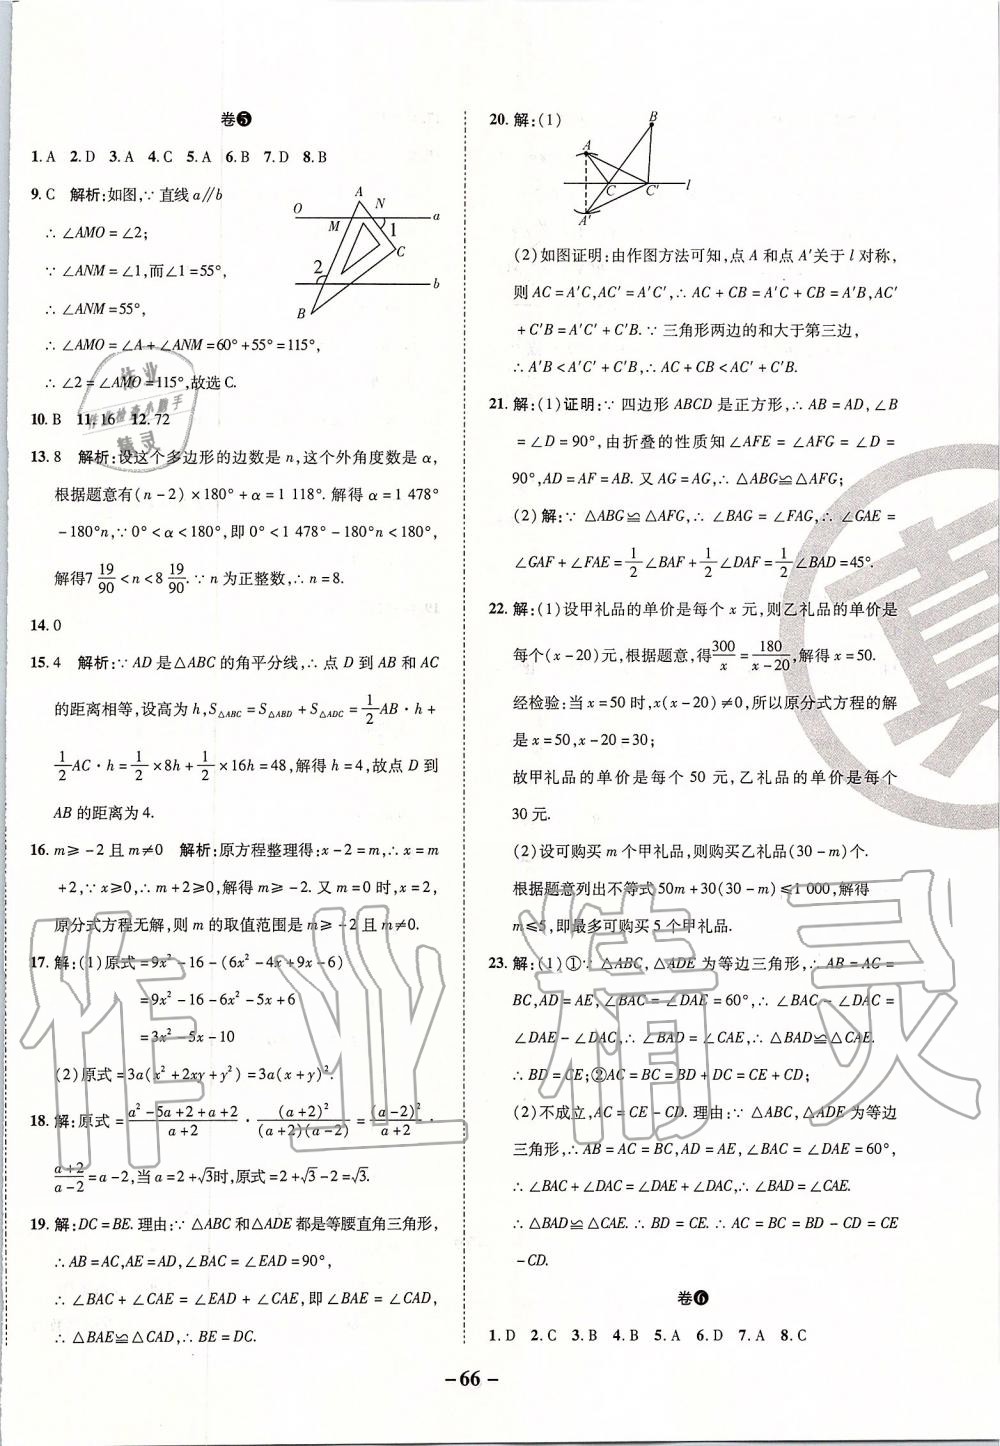 卷❺
1. A 2. D 3. A 4. C 5. A 6. B 7. D 8. B
9. C 解析:如图,∵直线 a∥b
∴∠AMO=∠2;
∵∠ANM=∠1,而∠1=55°,
∴∠ANM=55°,
∴∠AMO=∠A+∠ANM=60°+55°=115°,
∴∠2=∠AMO=115°,故选 C.
A
N
O
M
1
a
C
2
b
B
10. B 11. 16 12. 72
13. 8 解析:设这个多边形的边数是 n,这个外角度数是 α,
根据题意有(n-2)×180°+α=1 118°. 解得 α=1 478°
-180°n,∵0°<α<180°,即 0°<1 478°-180°n<180°,
解得7 19/90<n<8 19/90. ∵n 为正整数,∴n=8.
14. 0
15. 4 解析:∵AD 是△ABC 的角平分线,∴点 D 到 AB 和 AC
的距离相等,设高为 h,S△ABC=S△ABD+S△ADC=1/2AB·h+
1/2AC·h=1/2×8h+1/2×16h=48,解得 h=4,故点 D 到
AB 的距离为 4.
16. m≥-2 且 m≠0 解析:原方程整理得:x-2=m,∴x=m
+2,∵x≥0,∴m+2≥0,解得 m≥-2. 又∵m=0 时,x=2,
原分式方程无解,则 m 的取值范围是 m≥-2且 m≠0.
17. 解:(1)原式=9x²-16-(6x²-4x+9x-6)
=9x²-16-6x²-5x+6
=3x²-5x-10
(2)原式=3a(x²+2xy+y²)=3a(x+y)².
18. 解:原式=(a²-5a+2+a+2)/(a+2)·(a+2)²/((a+2)(a-2))=(a-2)²/(a+2)·
(a+2)/(a-2)=a-2,当 a=2+√3时,原式=2+√3-2=√3.
19. 解:DC=BE. 理由:∵△ABC 和△ADE 都是等腰直角三角形,
∴AB=AC,AE=AD,∠BAC=∠EAD=90°,
∴∠BAC+∠CAE=∠EAD+∠CAE,即∠BAE=∠CAD,
∴△BAE≌△CAD,∴BE=DC.
20. 解:(1)
B
A
C
C′
l
A′
(2)如图证明:由作图方法可知,点 A 和点 A′关于 l 对称,
则 AC=A′C,AC′=A′C′,∴AC+CB=A′C+CB=A′B,AC′
+C′B=A′C′+C′B. ∵三角形两边的和大于第三边,
∴A′B<A′C′+C′B,∴AC+CB<AC′+C′B.
21. 解:(1)证明:∵四边形 ABCD 是正方形,∴AB=AD,∠B
=∠D=90°,由折叠的性质知∠AFE=∠AFG=∠D=
90°,AD=AF=AB. 又 AG=AG,∴△ABG≌△AFG;
(2)解:∵△ABG≌△AFG,∴∠BAG=∠FAG,∴∠GAE=
∠GAF+∠FAE=1/2∠BAF+1/2∠DAF=1/2∠BAD=45°.
22. 解:(1)设甲礼品的单价是每个 x 元,则乙礼品的单价是
每个(x-20)元,根据题意,得300/x=180/(x-20),解得 x=50.
经检验:当 x=50 时,x(x-20)≠0,所以原分式方程的解
是 x=50,x-20=30;
故甲礼品的单价是每个 50 元,乙礼品的单价是每个
30 元.
(2)设可购买 m 个甲礼品,则购买乙礼品(30-m)个.
根据题意列出不等式50m+30(30-m)≤1 000,解得
m≤5,即最多可购买 5 个甲礼品.
23. 解:(1)①∵△ABC,△ADE 为等边三角形,∴AB=AC=
BC,AD=AE,∠BAC=∠DAE=60°,∴∠BAC-∠DAC=
∠DAE-∠DAC,∴∠BAD=∠CAE. ∴△BAD≌△CAE.
∴BD=CE;②AC=BC=BD+CD=CE+CD;
(2)不成立,AC=CE-CD. 理由:∵△ABC,△ADE 为等边
三角形,∴AB=AC=BC,AD=AE,∠BAC=∠DAE=60°,
∴∠BAC+∠DAC=∠DAE+∠DAC,∴∠BAD=∠CAE.
∴△BAD≌△CAE. ∴BD=CE. ∴AC=BC=BD-CD=CE
-CD.
卷❻
1. D 2. C 3. B 4. B 5. A 6. D 7. A 8. C
-66-
作业精灵
真
作业
作业检查小助手
精灵